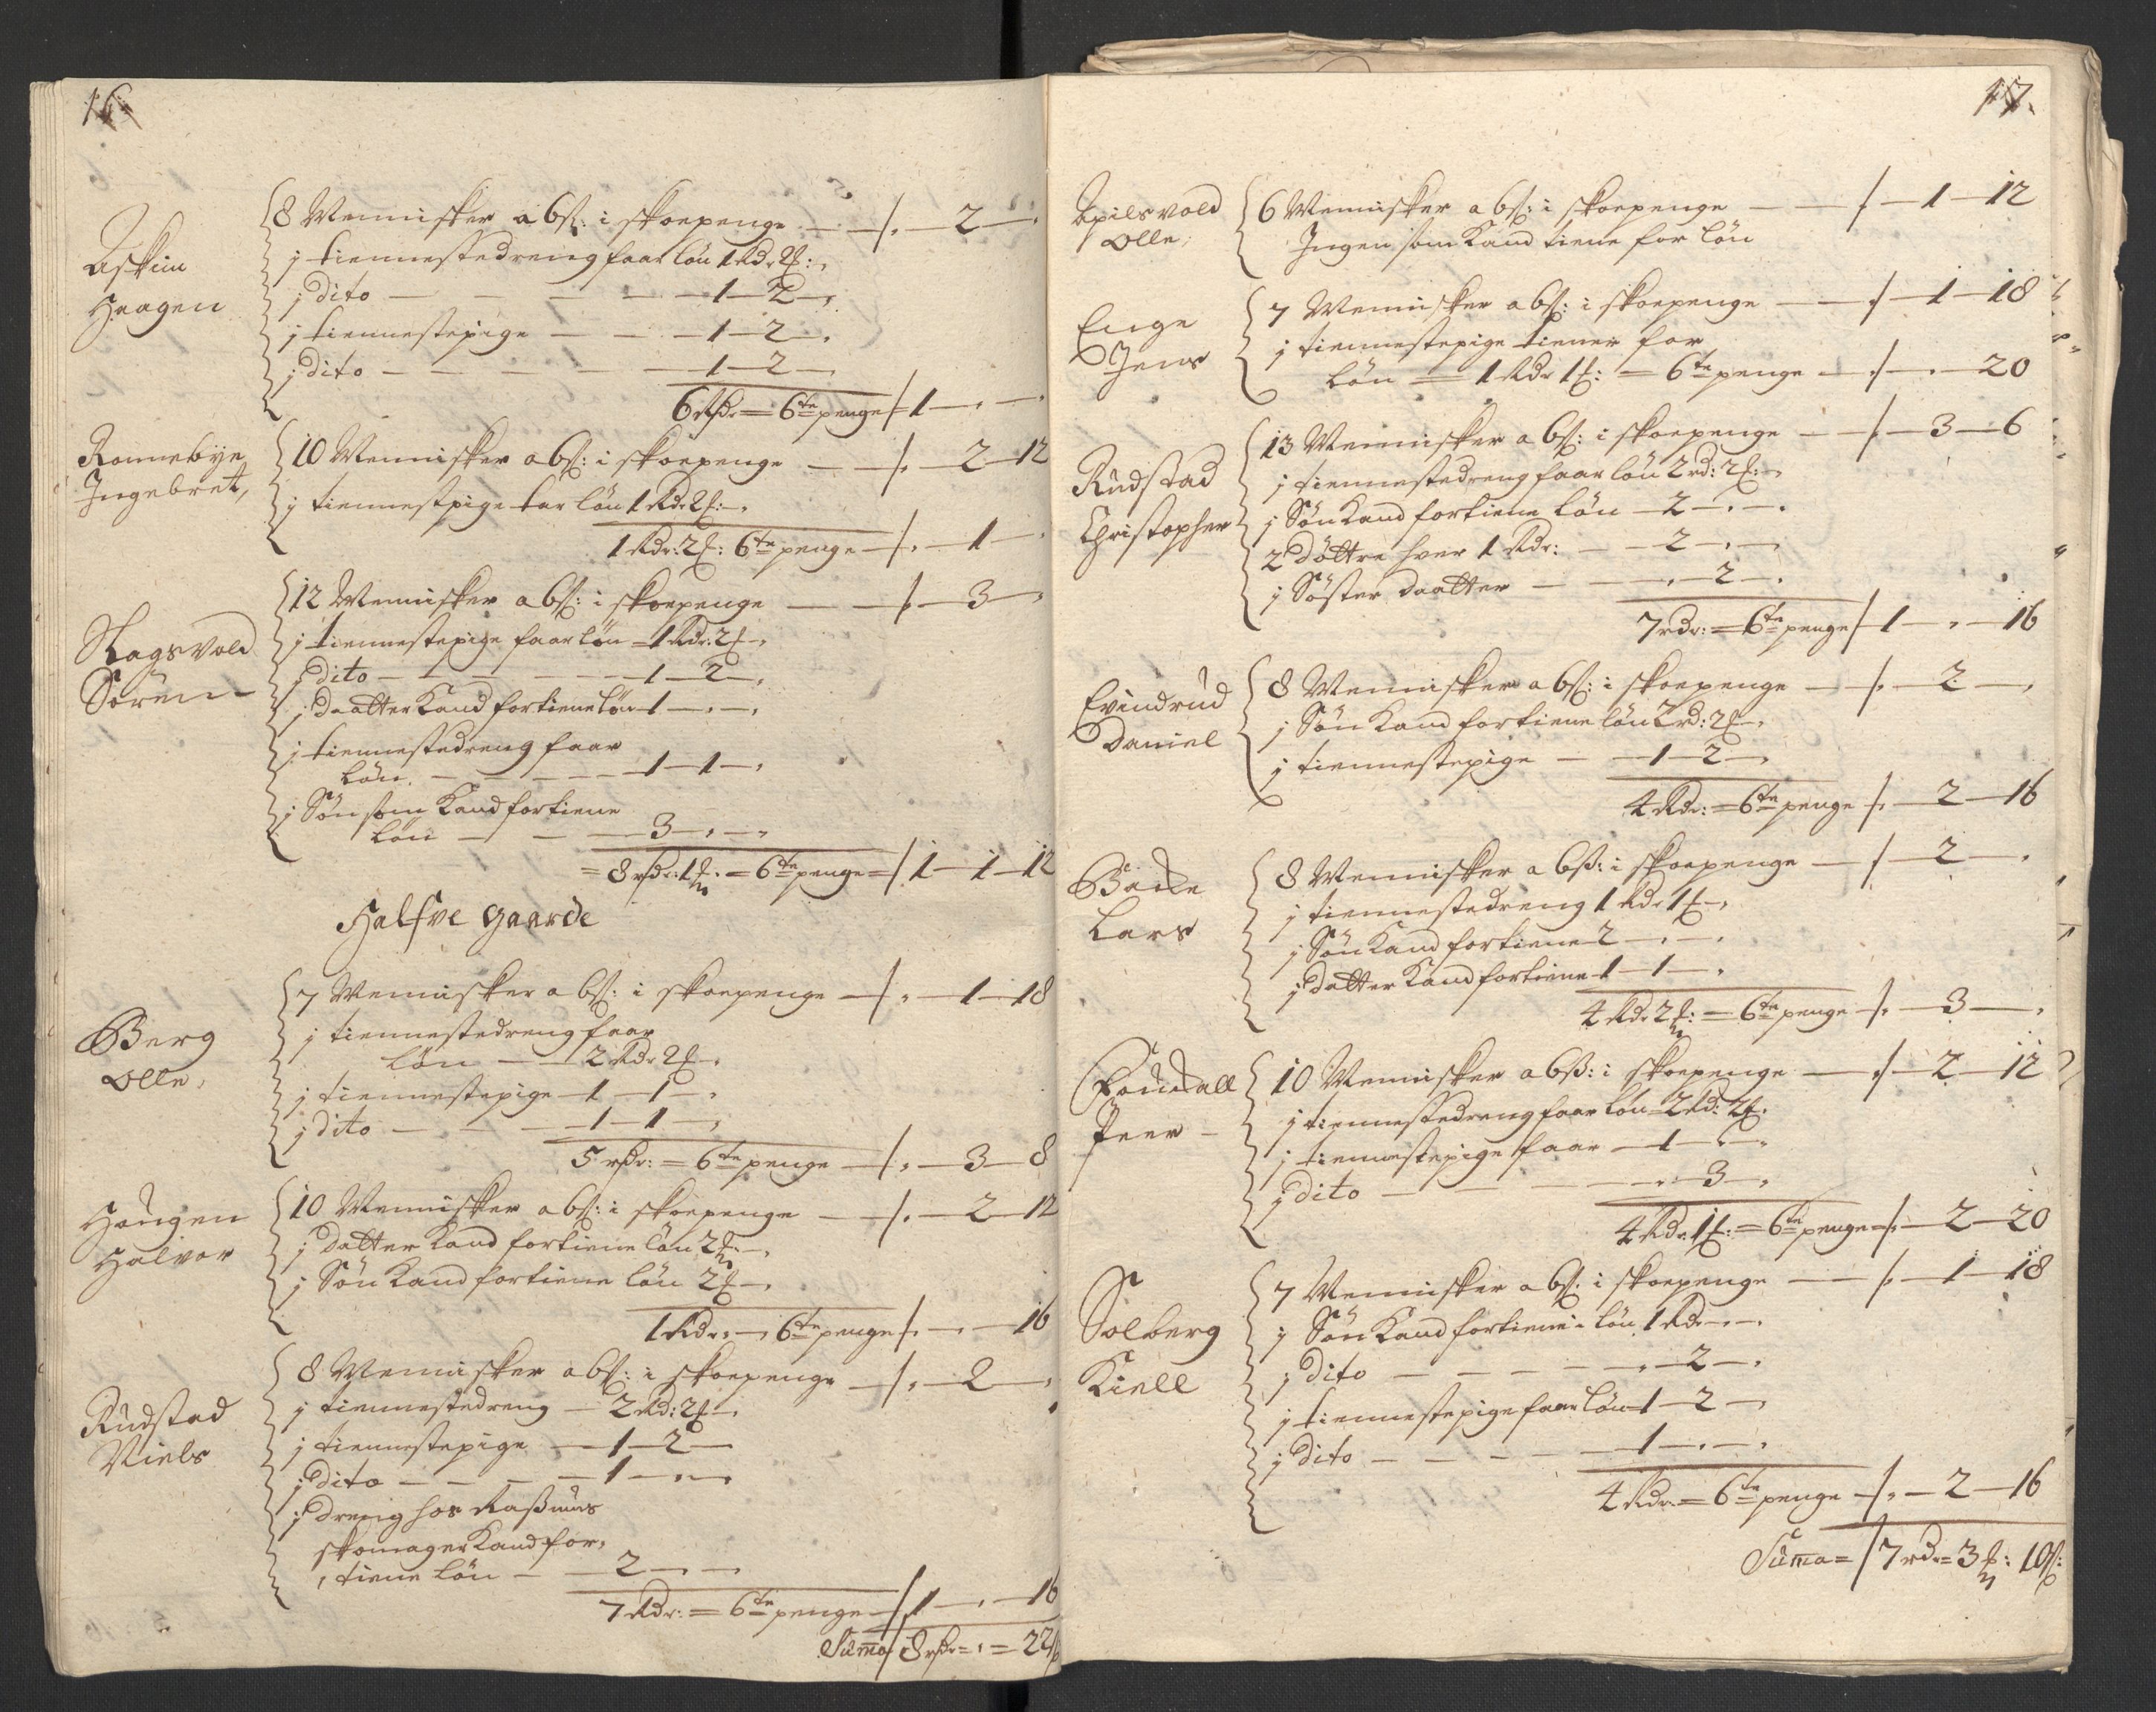 16
Askim
Haagen
8 Mennisker a 6ß: i skoepenge — /. — 2 — .
j tiennestedreng faar løn 1 Rdr 2 ʄ: .
j dito — — — — 1 — 2 — .
j tiennestepige — — 1 — 2 — .
j dito — — — — 1 — 2 —
6 Rdr = 6te penge / 1 — . —
Ronnebye
Ingebret,
10 Mennisker a 6ß: i skoepenge — /. — 2 — 12
j tiennestpige tar løn 1 Rdr 2 ʄ: — .
1 Rdr: 2 ʄ: 6te penge — /. — 1 —
Slagsvold
Sören —
12 Mennisker a 6ß: i skoepenge — /. — 3 — .
j tiennestepige faar løn = 1 Rdr. 2 ʄ — .
j dito — — — — 1 — 2 — .
j daatter Kand fortiene løn 1 — . — .
j tiennestedreng faar
løn. — — — 1 — 1 — .
j Søn som Kand fortiene
løn — — 3 — . —
= 8 rdr: 1 ʄ: = 6te penge = / 1 — 1 — 12
Halfve Gaarde
Berg
Olle,
7 Mennisker a 6ß: i skoepenge — /. — 1 — 18
j tiennestedreng faar
løn — — 2 Rdr 2 ʄ — .
j tiennestepige — 1 — 1 — .
j dito — — — 1 — 1 — .
5 rdr: = 6te penge — /. — 3 — 8
Hougen
Halvor
10 Mennisker a 6ß: i skoepenge — /. — 2 — 12
j datter Kand fortiene løn 2 ʄ: — .
j Søn Kand fortiene løn 2 ʄ — .
1 Rdr. — 6te penge /. — . — 16
Rudstad
Niels
8 Mennisker a 6ß: i skoepenge — /. — 2 — .
j tiennestedreng — 2 Rd: 2 ʄ — .
j tiennestepige — 1 — 2 —
j dito — — — 1 — . — .
j dreng hos Rassmus
skomager Kand for,
,tiene løn — 2 — . —
7 Rdr: = 6te penge — / 1 — . — 16
Suma / 8 rdr = . = 22 ß
17.
Apilsvold
Olle,
6 Mennisker a 6ß: i skoepenge — — /. — 1 — 12
Ingen som Kand tiene for løn
Enge
Jens
7 Mennisker a 6ß: i skoepenge — — /. — 1 — 18
j tiennestepige tiener for
løn = 1 Rdr 1 ʄ: = 6te penge — /. — . — 20
Rudstad
Christopher
13 Mennisker a 6ß: i skoepenge — — /. — 3 — 6
j tiennestedreng faar løn 2 rd: 2 ʄ: — .
j Søn Kand fortiene løn — 2 — . — .
2 döttre hver 1 Rdr: — — 2 — . —
j Söster daatter — — . — 2 — .
7 rdr: = 6te penge / 1 — . — 16
Evindrud
Daniel
8 Mennisker a 6ß: i skoepenge — /. — 2 — .
j Søn Kand fortiene løn 2 rd: 2 ʄ — .
j tiennestepige — — 1 — 2 — .
4 Rdr: = 6te penge /. — 2 — 16
Lars
8 Mennisker a 6ß: i skoepenge — /. — 2 — .
j tiennestedreng 1 Rdr 1 ʄ — .
j Søn Kand fortiene 2 — . — .
j datter Kand fortiene 1 — 1 — .
4 Rdr 2 ʄ: = 6te penge — /. — 3 — .
Peer —
10 Mennisker a 6ß: i skoepenge — /. — 2 — 12
j tiennestedreng faar løn = 2 Rd: 2 ʄ.
j tiennestepige faar — 1 — . — .
j dito — — — — . — 3 — .
4 Rdr. 1 ʄ: = 6te penge = /. — 2 — 20
Solberg
Kiell
7 Mennisker a 6ß: i skoepenge — — /. — 1 — 18
j Søn Kand fortiene løn 1 Rdr — . — .
j dito — — — — . — 2 — .
j tiennestepige faar løn 1 — 2 — .
j dito — — — — 1 — . — .
4 Rdr = 6te penge — /. — 2 — 16
Suma = / 7 rdr = 3 ʄ: 10 ß: